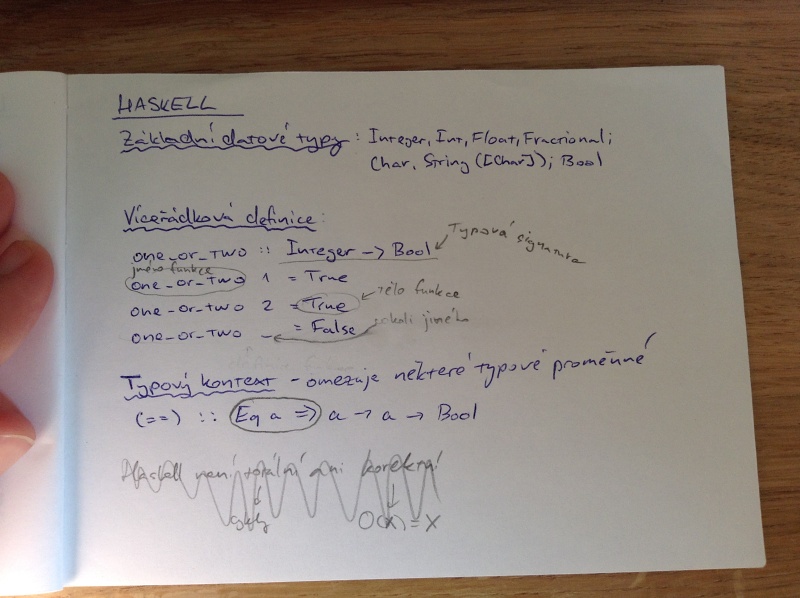 HASKELL
Základní datové typy: Integer, Int, Float, Fractional;
Char, String ([Char]); Bool
Víceřádková definice:
one_or_two :: Integer -> Bool
Typová signatura
jméno funkce
one_or_two 1 = True
one_or_two 2 = True
tělo funkce
one_or_two _ = False
cokoli jiného
Typový kontext - omezuje některé typové proměnné
(==) :: Eq a => a -> a -> Bool
Haskell není totální ani korektní
cykly O(X) = X